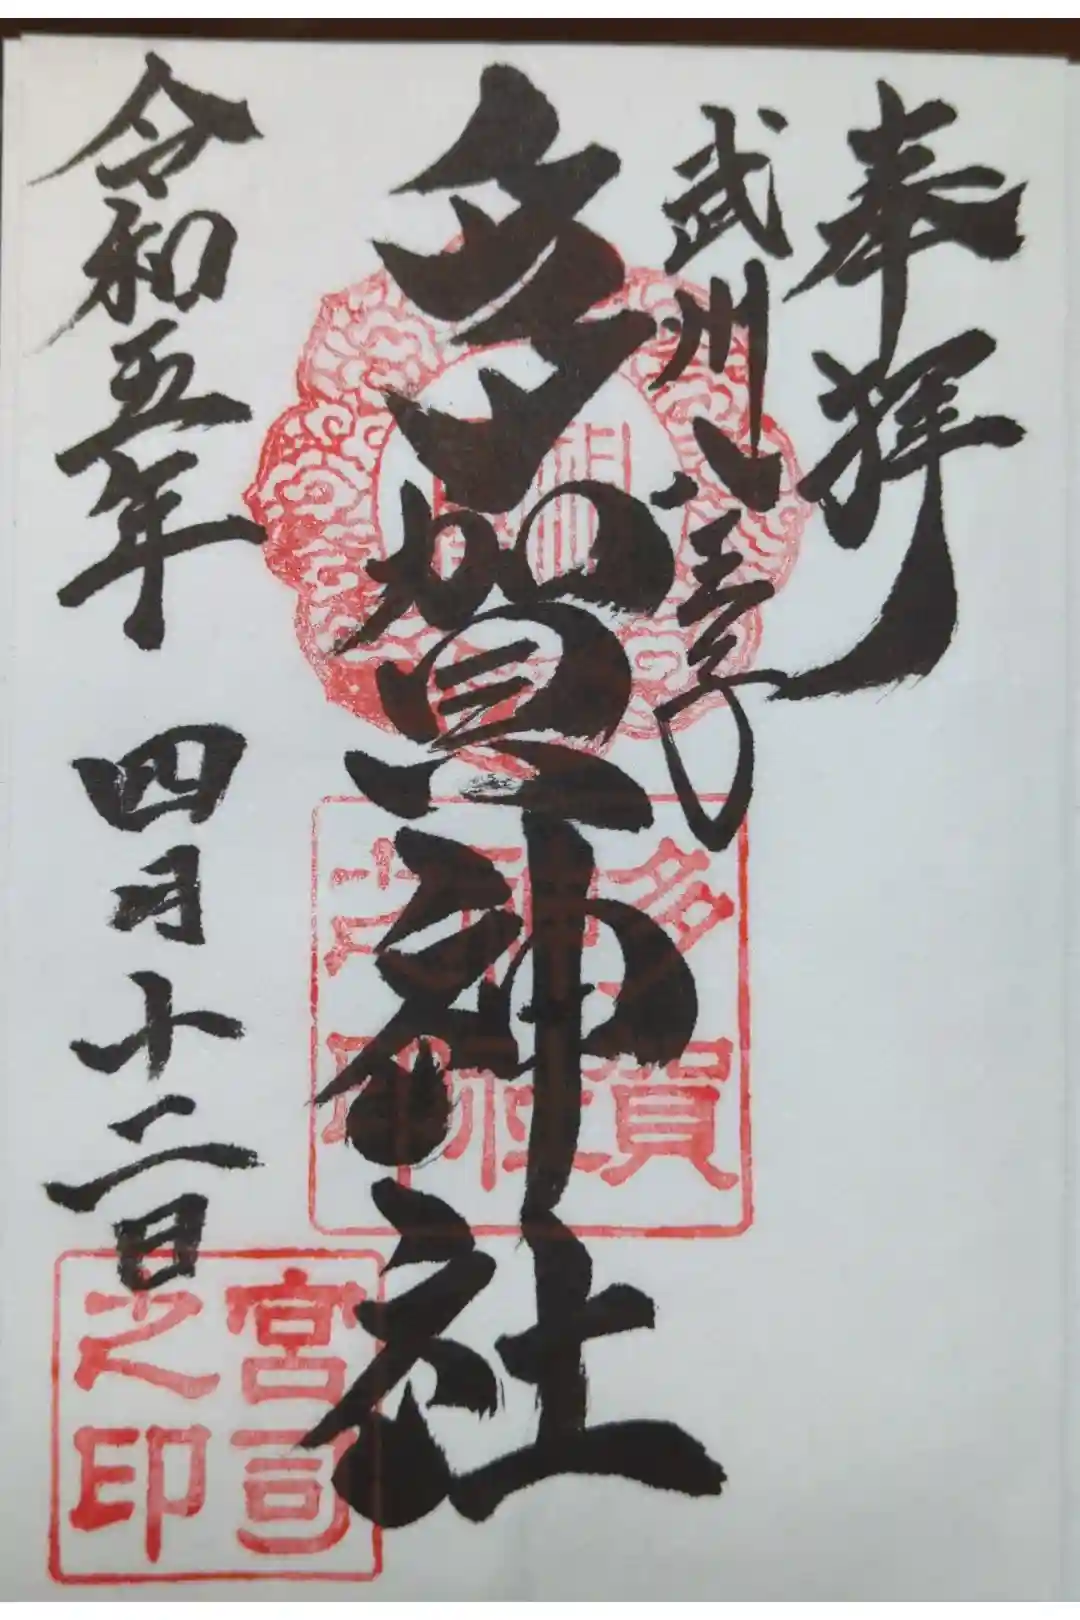 奉拝
武州八王子
多賀神社
令和五年 四月十二日
多賀神社之印
宮司之印